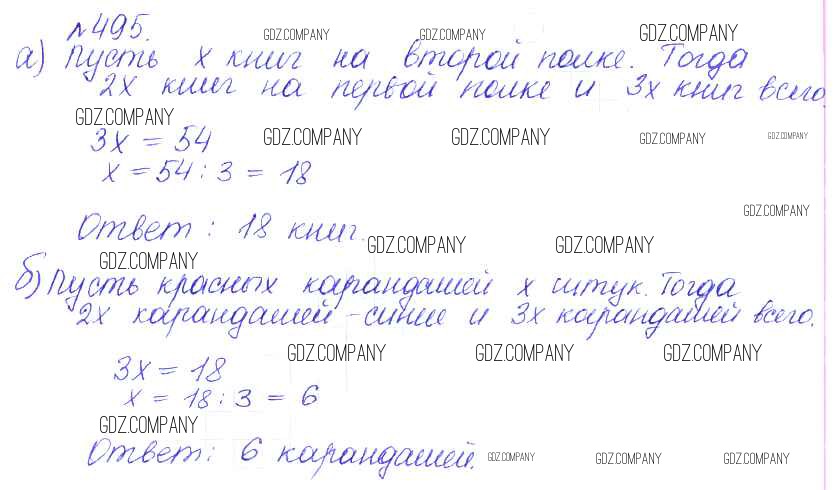 №495.
GDZ.COMPANY GDZ.COMPANY GDZ.COMPANY
а) Пусть х книг на второй полке. Тогда
2х книг на первой полке и 3х книг всего.
GDZ.COMPANY
3х = 54
GDZ.COMPANY GDZ.COMPANY GDZ.COMPANY GDZ.COMPANY
х = 54 : 3 = 18
GDZ.COMPANY
Ответ : 18 книг.
GDZ.COMPANY GDZ.COMPANY
GDZ.COMPANY
б) Пусть красных карандашей х штук. Тогда
2х карандашей - синие и 3х карандашей всего.
GDZ.COMPANY GDZ.COMPANY GDZ.COMPANY
3х = 18
х = 18 : 3 = 6
GDZ.COMPANY
Ответ: 6 карандашей.
GDZ.COMPANY GDZ.COMPANY GDZ.COMPANY